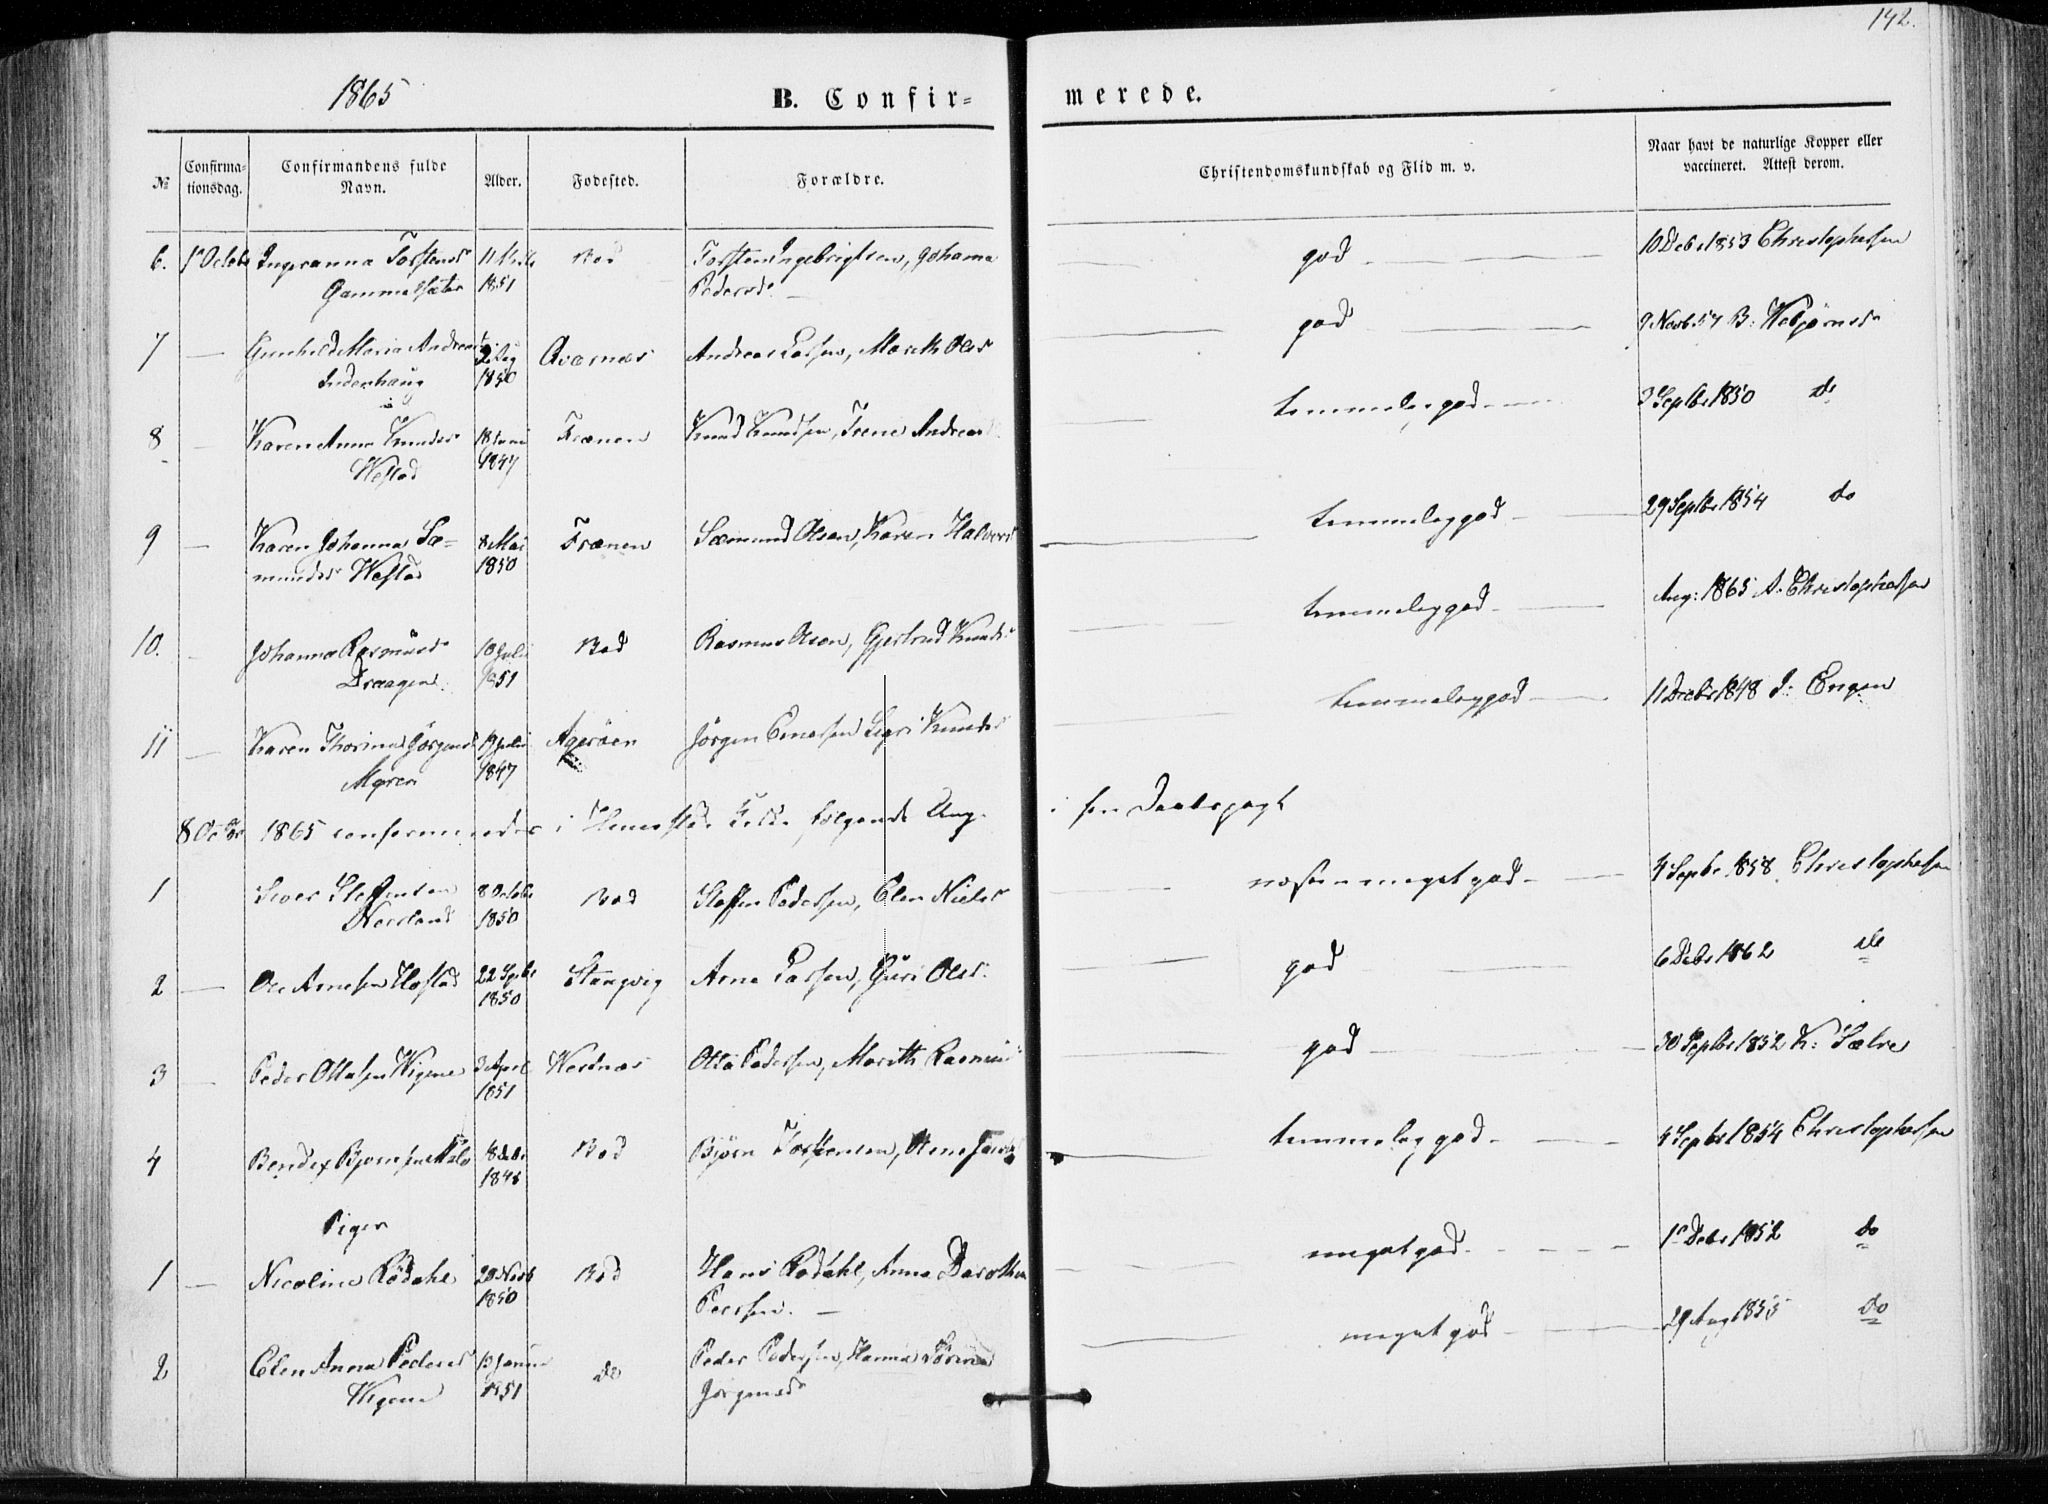 142.
1865
B. Confir= merede.
№
Confirma-tionsdag.
Confirmandens fulde Navn.
Alder.
Fødested.
Forældre.
Christendomskundskab og Flid m. v.
Naar havt de naturlige Kopper eller vaccineret. Attest derom.
6. 1 Octobr Ingeranna Torstensd 11 Bod Torsten Ingebrigtsen, Johanna god 10 Debr 1853 Christophersen
Gammelsæter 1851 Pedersd
7 Gunhild Maria Andreasd Averøens Andreas Larsen, Marith Olsd god 9 Novb 57 B: Webjørnsd
Inderhaug 1850
8 Karen Anna Knudsd 18 Juni Frænen Knud Knudsen, Andreasd temmelig god 3 Septbr 1850 do
Westad 1847
9 Karen Johanna Sæ= 8 Mai Frænen Sæmund Olsen, Karen Halvorsd temmelig god 29 Septbr 1854 do
mundsd Westad 1850
10. Johanna Rasmusd 10 Juli Bod Rasmus Olsen, Gjertrud Knudsd temmelig god Aug: 1865 A. Christophersen
Draagen 1851
11 Karen Thorina Jørgensd 19 Juli Agerøen Jørgen Knudsd temmelig god 11 Decbr 1848 J: Engen
Myren 1847
8 Octbr 1865 confirmeredes i følgende Ung. i sin Daabspagt
1 Siver Steffensen 8 Octobr Bod Steffen Pedersen, Elen Nielsd næsten meget god 4 Septbr 1858 Christophersen
Norland 1850
2 Ole Arnesen Hostad 22 Septbr Stangvig Arne Larsen, Guri Olsd god 6 Debr 1862 do
1850
3 Peder Ottesen Vigene 3 April Vestnæs Otto Pedersen, Marith Rasmusd god 30 Septbr 1852 K: Sælre
1851
4 Bendix Bjørnsen Male 8 Debr Bod Bjørn Torstensen, temmelig god 4 Septbr 1854 Christophersen
1848
Piger
1 Nicoline Rødahl 20 Novb Bod Hans Rødahl, Anna Dorothea meget god 1 Debr 1852 do
1850 Peersen.
2 Elen Anna Pedersd 13 Januar do Peder Pedersen, Hanna Sørina meget god 29 Aug 1855 do
Vigene 1851 Jørgensd